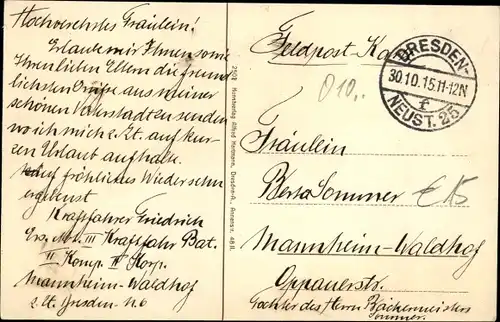 Hochverehrtes Fräulein!
Erlaube mir Ihnen sowie
Ihren lieben Eltern die freund
lichsten Grüße aus meiner
schönen Vaterstadt zu senden
wo ich mich z. Zt. auf kur-
zen Urlaub aufhalte.
Auf fröhliches Wiedersehn
ergebenst
Kraftfahrer Friedrich
III Kraftfahr Bat.
II Komp. Korp.
Mannheim-Waldhof
z. Zt. Dresden N. 6
2503 Kunstverlag Alfred Hartmann, Dresden-A., Annenstr. 48 II.
Feldpost Ka
DRESDEN-
30.10.15.11-12N
f
NEUST. 25
010,-
Fräulein
Berta Sommer
€ 15
Mannheim-Waldhof
Oppauerstr.
Tochter des Herrn Bäckermeisters
Sommer.